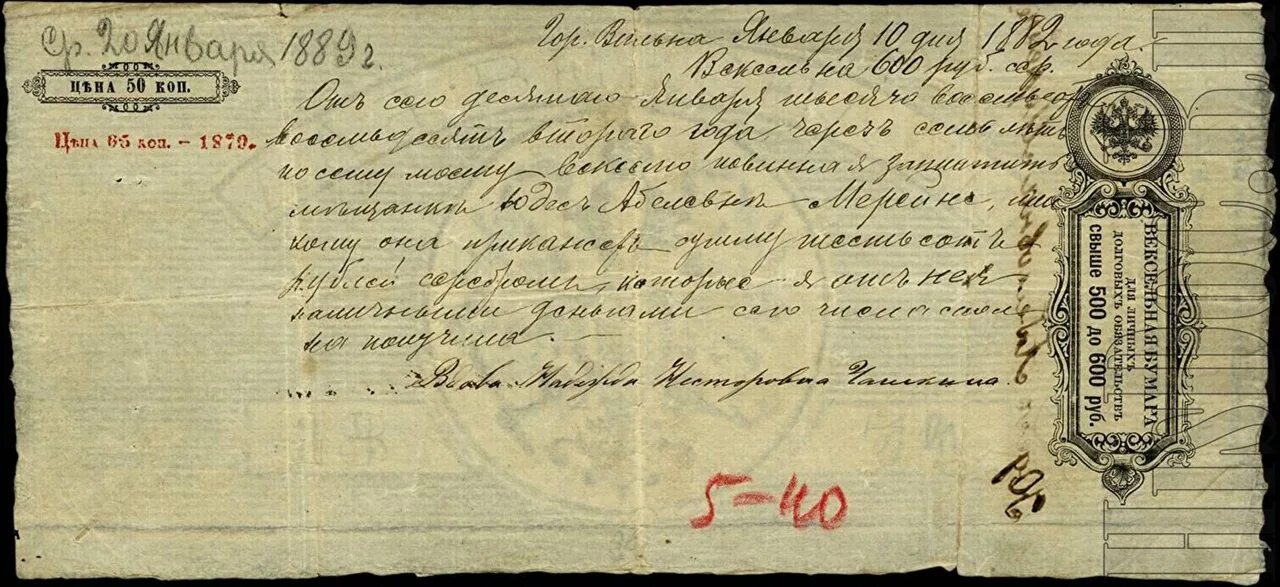 Ср. 20 Января 1889 г.
ЦѢНА 50 КОП.
Цѣна 65 коп. – 1879.
Гор. Вильна Января 10 дня 1882 года.
Вексель на 600 руб. сер.
Отъ сего десятаго Января тысяча восемьсот
восемьдесятъ втораго года черезъ семь лѣтъ
по сему моему векселю повинная я заплатить
мѣщанкѣ Абелевнѣ Мерейнѣ, или
кому она прикажетъ сумму шестьсотъ
рублей серебромъ, которые я отъ нея
наличными деньгами сего числа спол
на получила. —
Вдова Надежда Несторовна Чашкина
5-40
ВЕКСЕЛЬНАЯ БУМАГА
ДЛЯ ЛИЧНЫХЪ
ДОЛГОВЫХЪ ОБЯЗАТЕЛЬСТВЪ
СВЫШЕ 500 ДО 600 РУБ.